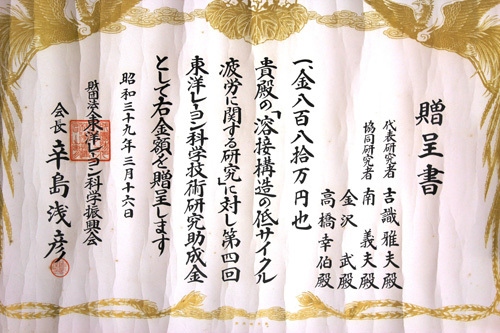 贈呈書
代表研究者 吉識雅夫殿
協同研究者 南義夫殿
金沢武殿
高橋幸伯殿
一、金八百八拾万円也
貴殿の「溶接構造の低サイクル
疲労に関する研究」に対し第四回
東洋レーヨン科学技術研究助成金
として右金額を贈呈します
昭和三十九年三月十六日
財団法人東洋レーヨン科学振興会
会長 辛島浅彦